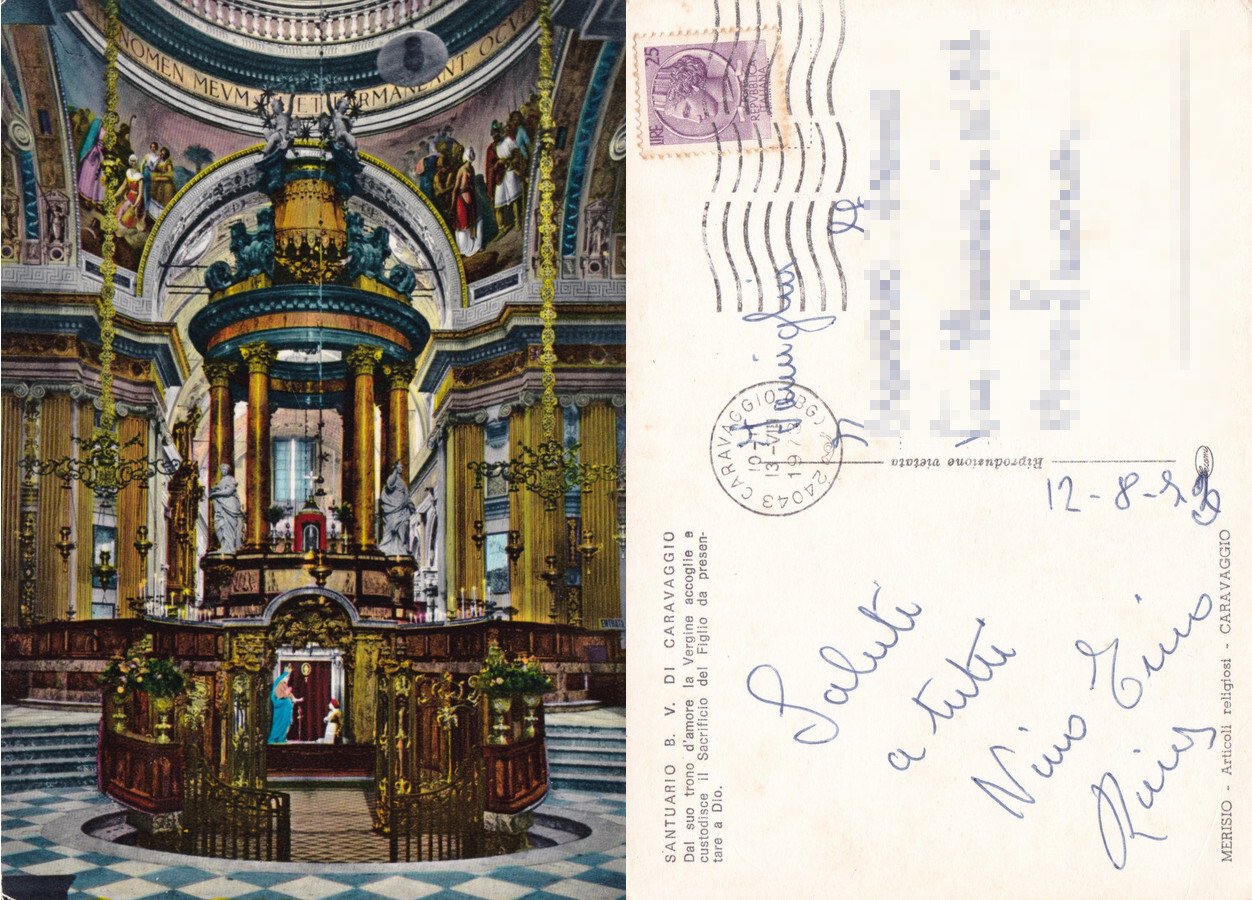 NOMEN MEVM ET
25
LIRE
REPVBBLICA
ITALIANA
Famiglia
24043 CARAVAGGIO (BG)
13-VIII
Riproduzione vietata
12-8-
SANTUARIO B. V. DI CARAVAGGIO
Dal suo trono d'amore la Vergine accoglie e
custodisce il Sacrificio del Figlio da presen-
tare a Dio.
Saluti
a tutti
Nino
MERISIO - Articoli religiosi - CARAVAGGIO